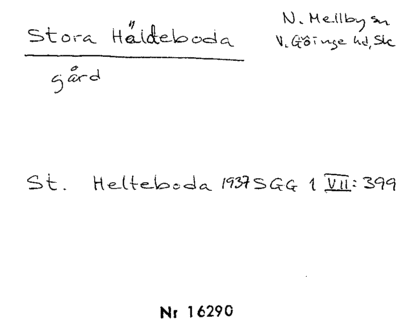 Stora Häldeboda
N. Mellby sn
V. Göinge hd, Sk
gård
St. Helteboda 1937 SGG 1 VII: 399
Nr 16290